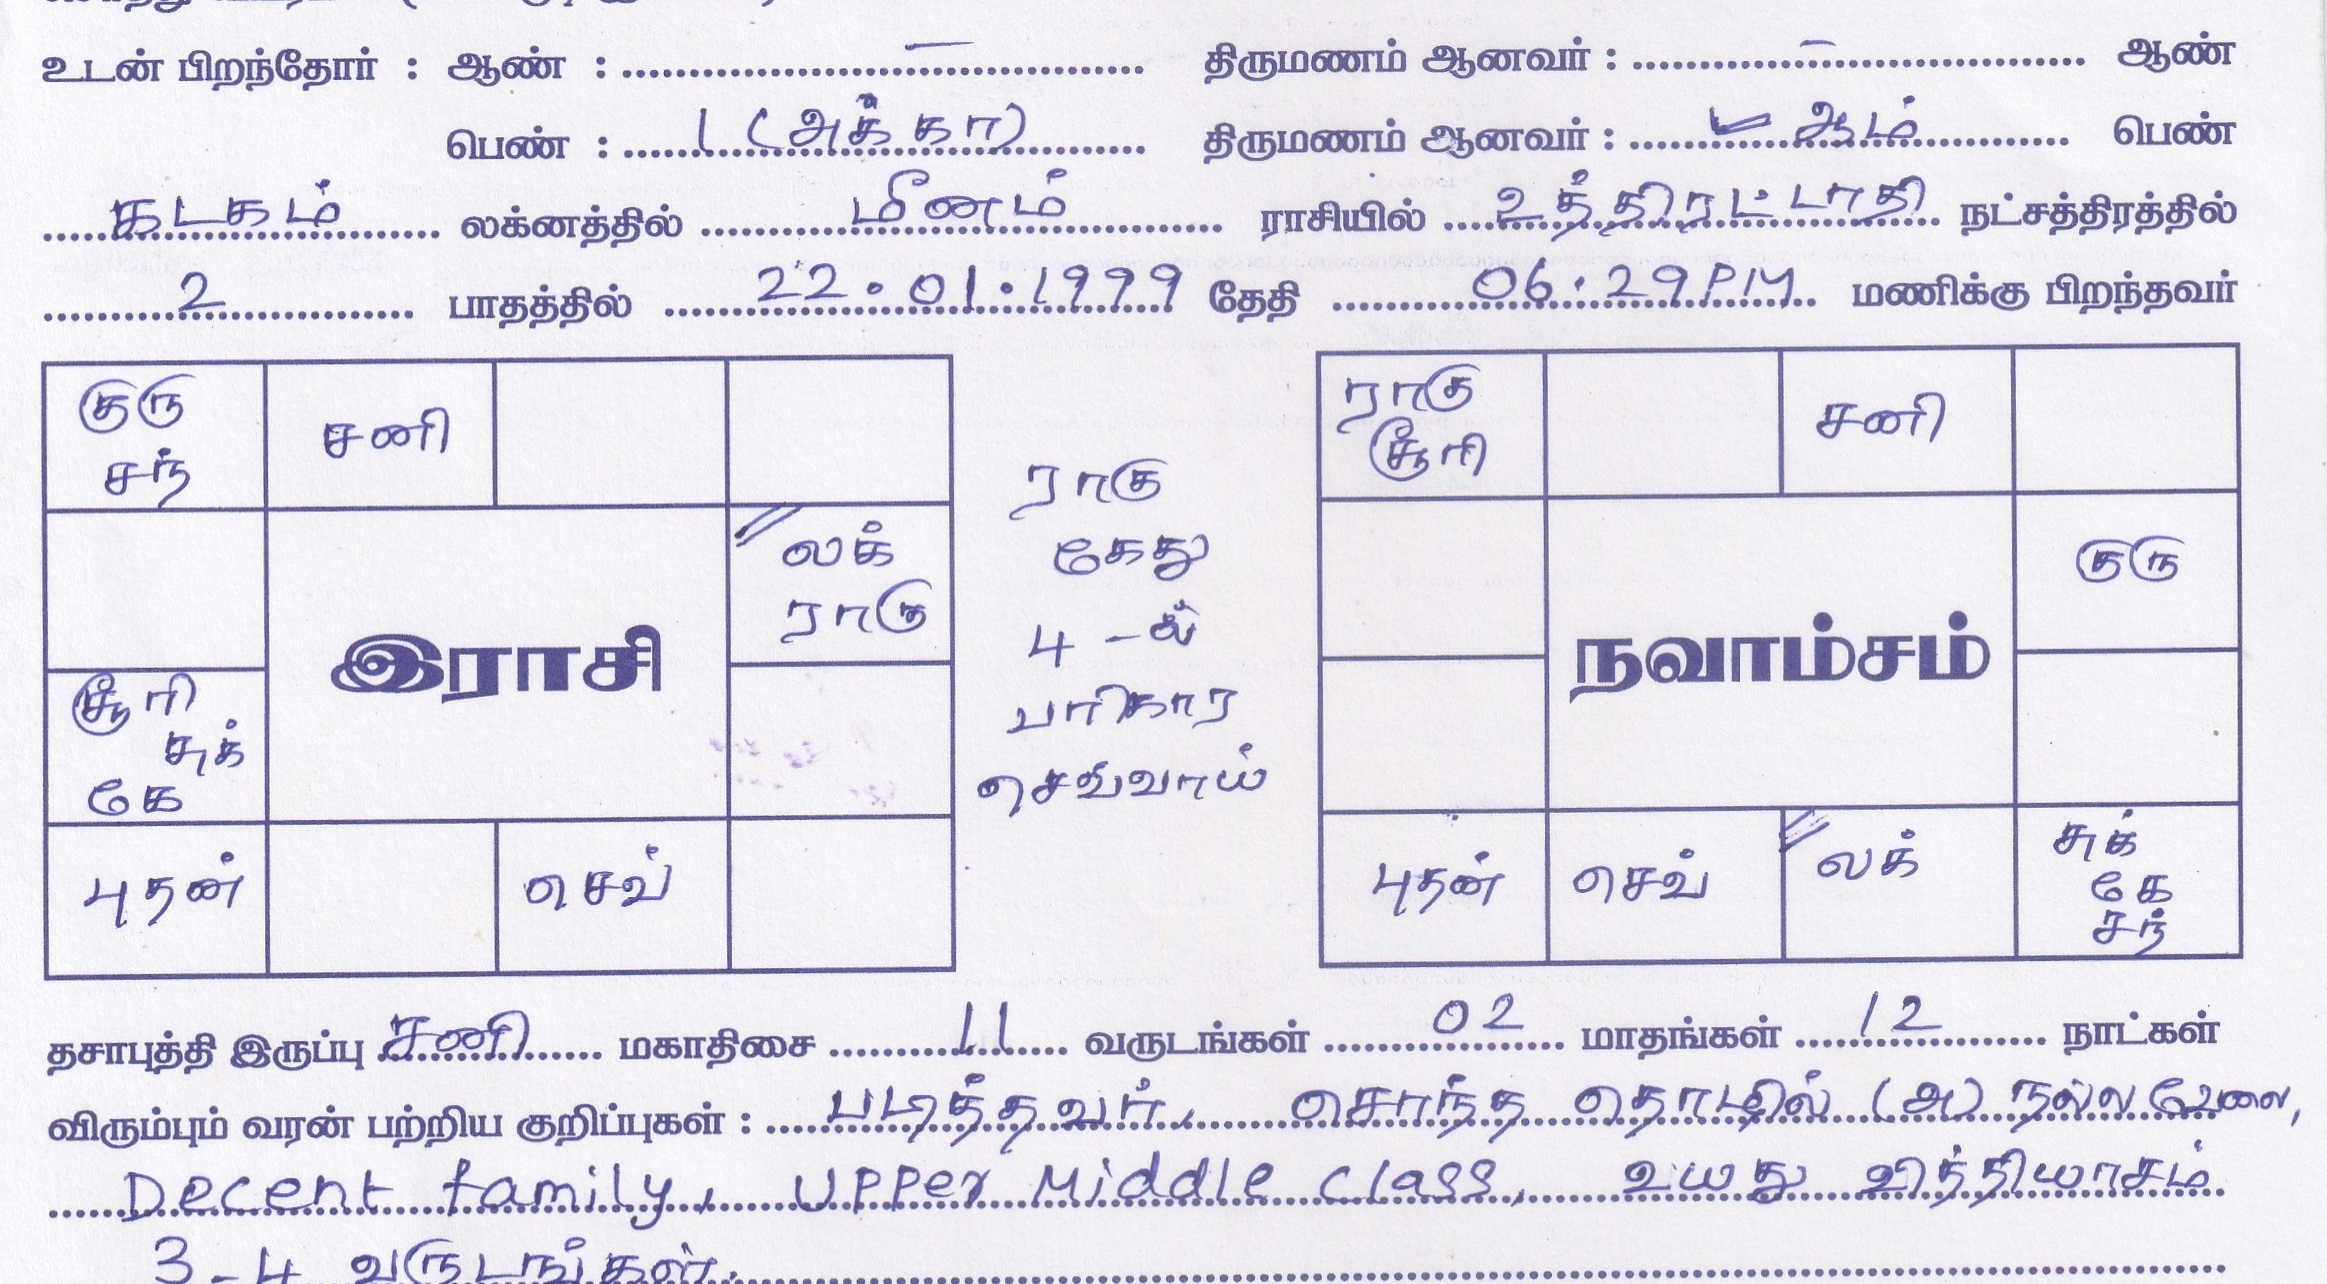 உடன் பிறந்தோர் : ஆண் : – திருமணம் ஆனவர் : – ஆண்
பெண் : 1 (அக்கா) திருமணம் ஆனவர் : ஆம் பெண்
கடகம் லக்னத்தில் மீனம் ராசியில் உத்திரட்டாதி நட்சத்திரத்தில்
2 பாதத்தில் 22.01.1999 தேதி 06.29PM மணிக்கு பிறந்தவர்
குரு
சந்
சனி
லக்
ராகு
சூரி
சுக்
கே
இராசி
புதன்
செவ்
ராகு
கேது
4-ல்
பரிகார
செவ்வாய்
ராகு
சூரி
சனி
குரு
நவாம்சம்
புதன்
செவ்
லக்
சுக்
கே
சந்
தசாபுத்தி இருப்பு சனி மகாதிசை 11 வருடங்கள் 02 மாதங்கள் 12 நாட்கள்
விரும்பும் வரன் பற்றிய குறிப்புகள் : படித்தவர், சொந்த தொழில் (அ) நல்ல வேலை,
Decent family, Upper Middle class, வயது வித்தியாசம்
3-4 வருடங்கள்.